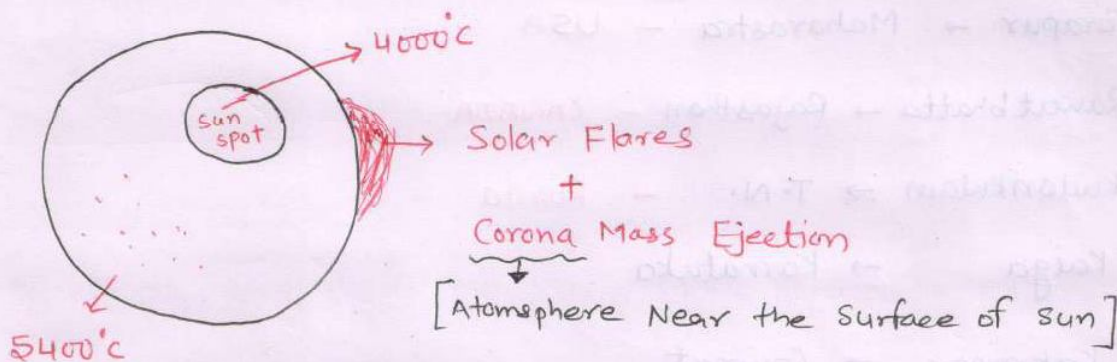 4000°C
sun
spot
→ Solar Flares
+
Corona Mass Ejection
[Atomsphere Near the Surface of Sun]
5400°C